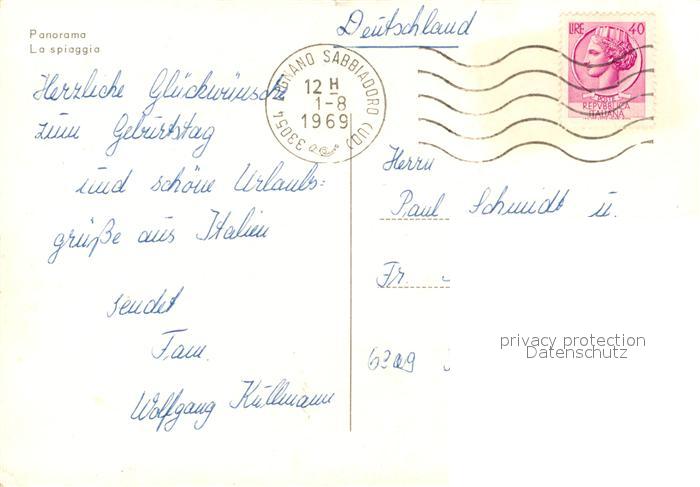 Panorama
La spiaggia
Deutschland
33054 LIGNANO SABBIADORO (UD)
12 H
1-8
1969
LIRE 40
POSTE
REPVBBLICA
ITALIANA
Herzliche Glückwünsche
zum Geburtstag
und schöne Urlaubs=
grüße aus Italien
sendet
Fam.
Wolfgang Küllmann
Herrn
Paul Schmidt u.
Fr.
6309
privacy protection
Datenschutz